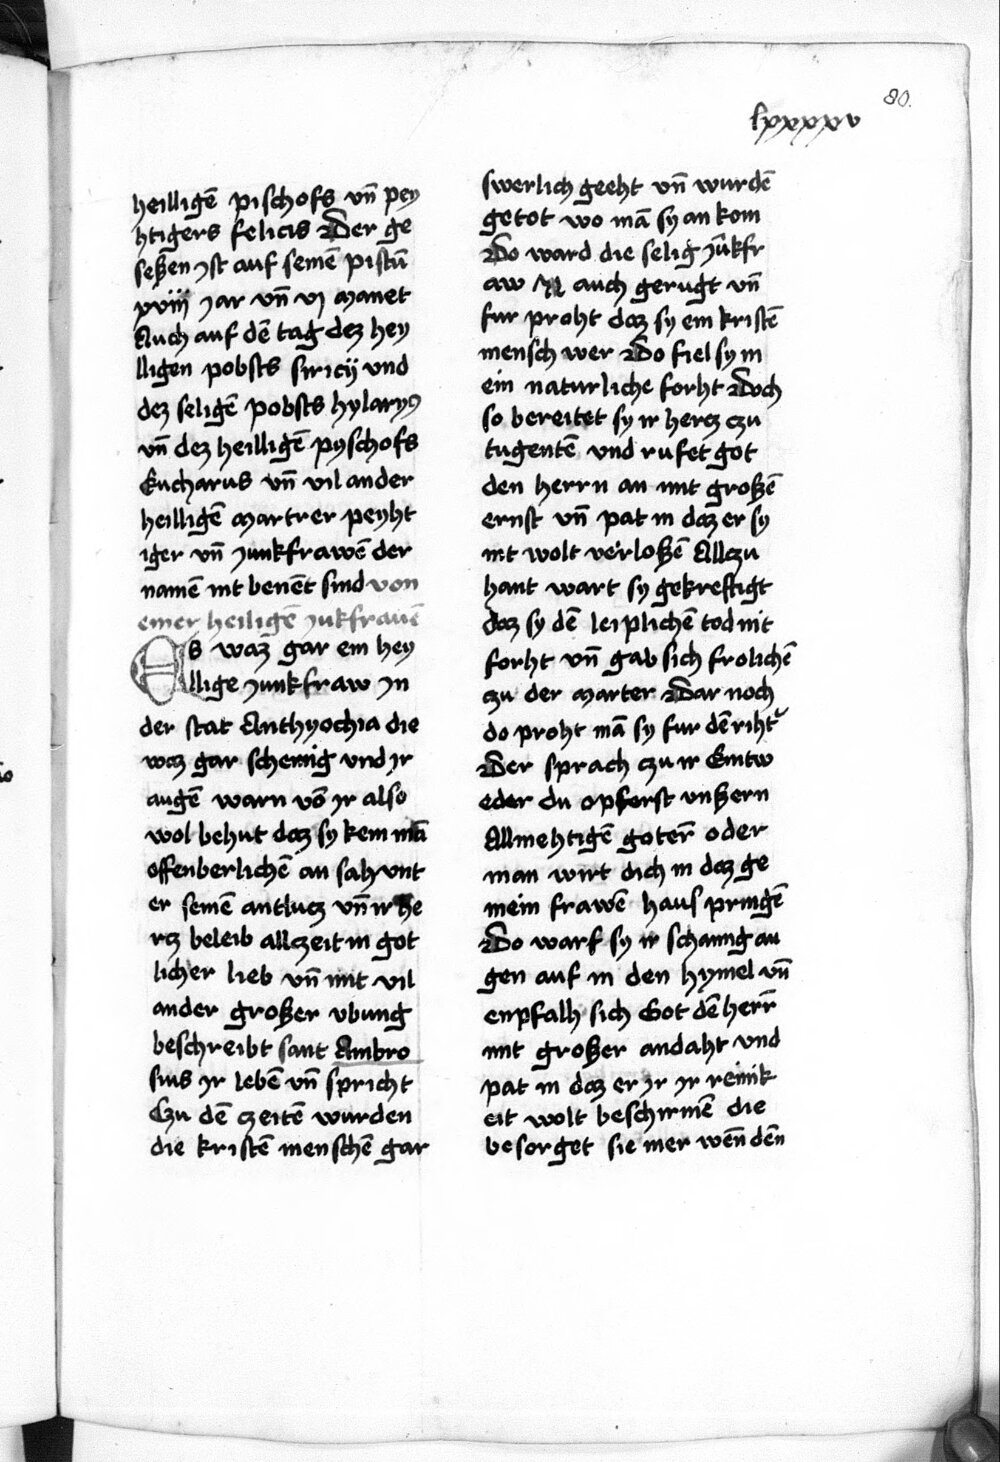 80.
lxxxxv
heilligē pischofs vn̄ pey
htigers felicis Der ge
seßen yst auf seinē pistū
xviij jar vn̄ vj manet
Auch auf dē tag dez hey
lligen pobsts siricij vnd
dez seligē pobsts hylaryꝰ
vn̄ dez heilligē pyschofs
Eucharus vn̄ vil ander
heilligē martrer peyht
iger vn̄ junkfrawē der
namē nit benēt sind von
einer heiligē jukfrauē
Es waz gar ein hey
llige junkfraw jn
der stat Anthyochia die
waz gar scheinig vnd jr
augē warn vō jr also
wol behut daz sy kein mā
offenberlichē an sah vnt
er seinē antlucz vn̄ ir he
rcz beleib allczeit in got
licher lieb vn̄ mit vil
ander großer vbung
beschreibt sant Ambro
sius jr lebē vn̄ spricht
Czu dē czeitē wurden
die kristē menschē gar
swerlich geeht vn̄ wurdē
getot wo mā sy an kom
Do ward die selig jūkfr
aw N auch gerugt vn̄
fur proht daz sy ein kristē
mensch wer Do fiel sy in
ein naturliche forht Doch
so bereitet sy ir hercz czu
tugentē vnd rufet got
den herrn an mit großē
ernst vn̄ pat in daz er sy
nit wolt verloßē Allczu
hant wart sy gekreftigt
daz sy dē leiplichē tod nit
forht vn̄ gab sich frolichē
czu der marter Dar noch
do proht mā sy fur dē riht̛
Der sprach czu ir Eintw
eder du opferst vnßern
Allmehtigē goter̄ oder
man wirt dich in daz ge
mein frawē haus pringē
Do warf sy ir schainig au
gen auf in den hymel vn̄
enpfalh sich Got dē herr̄
mit großer andaht vnd
pat in daz er jr jr reinik
eit wolt beschirmē die
besorget sie mer wēn dēn